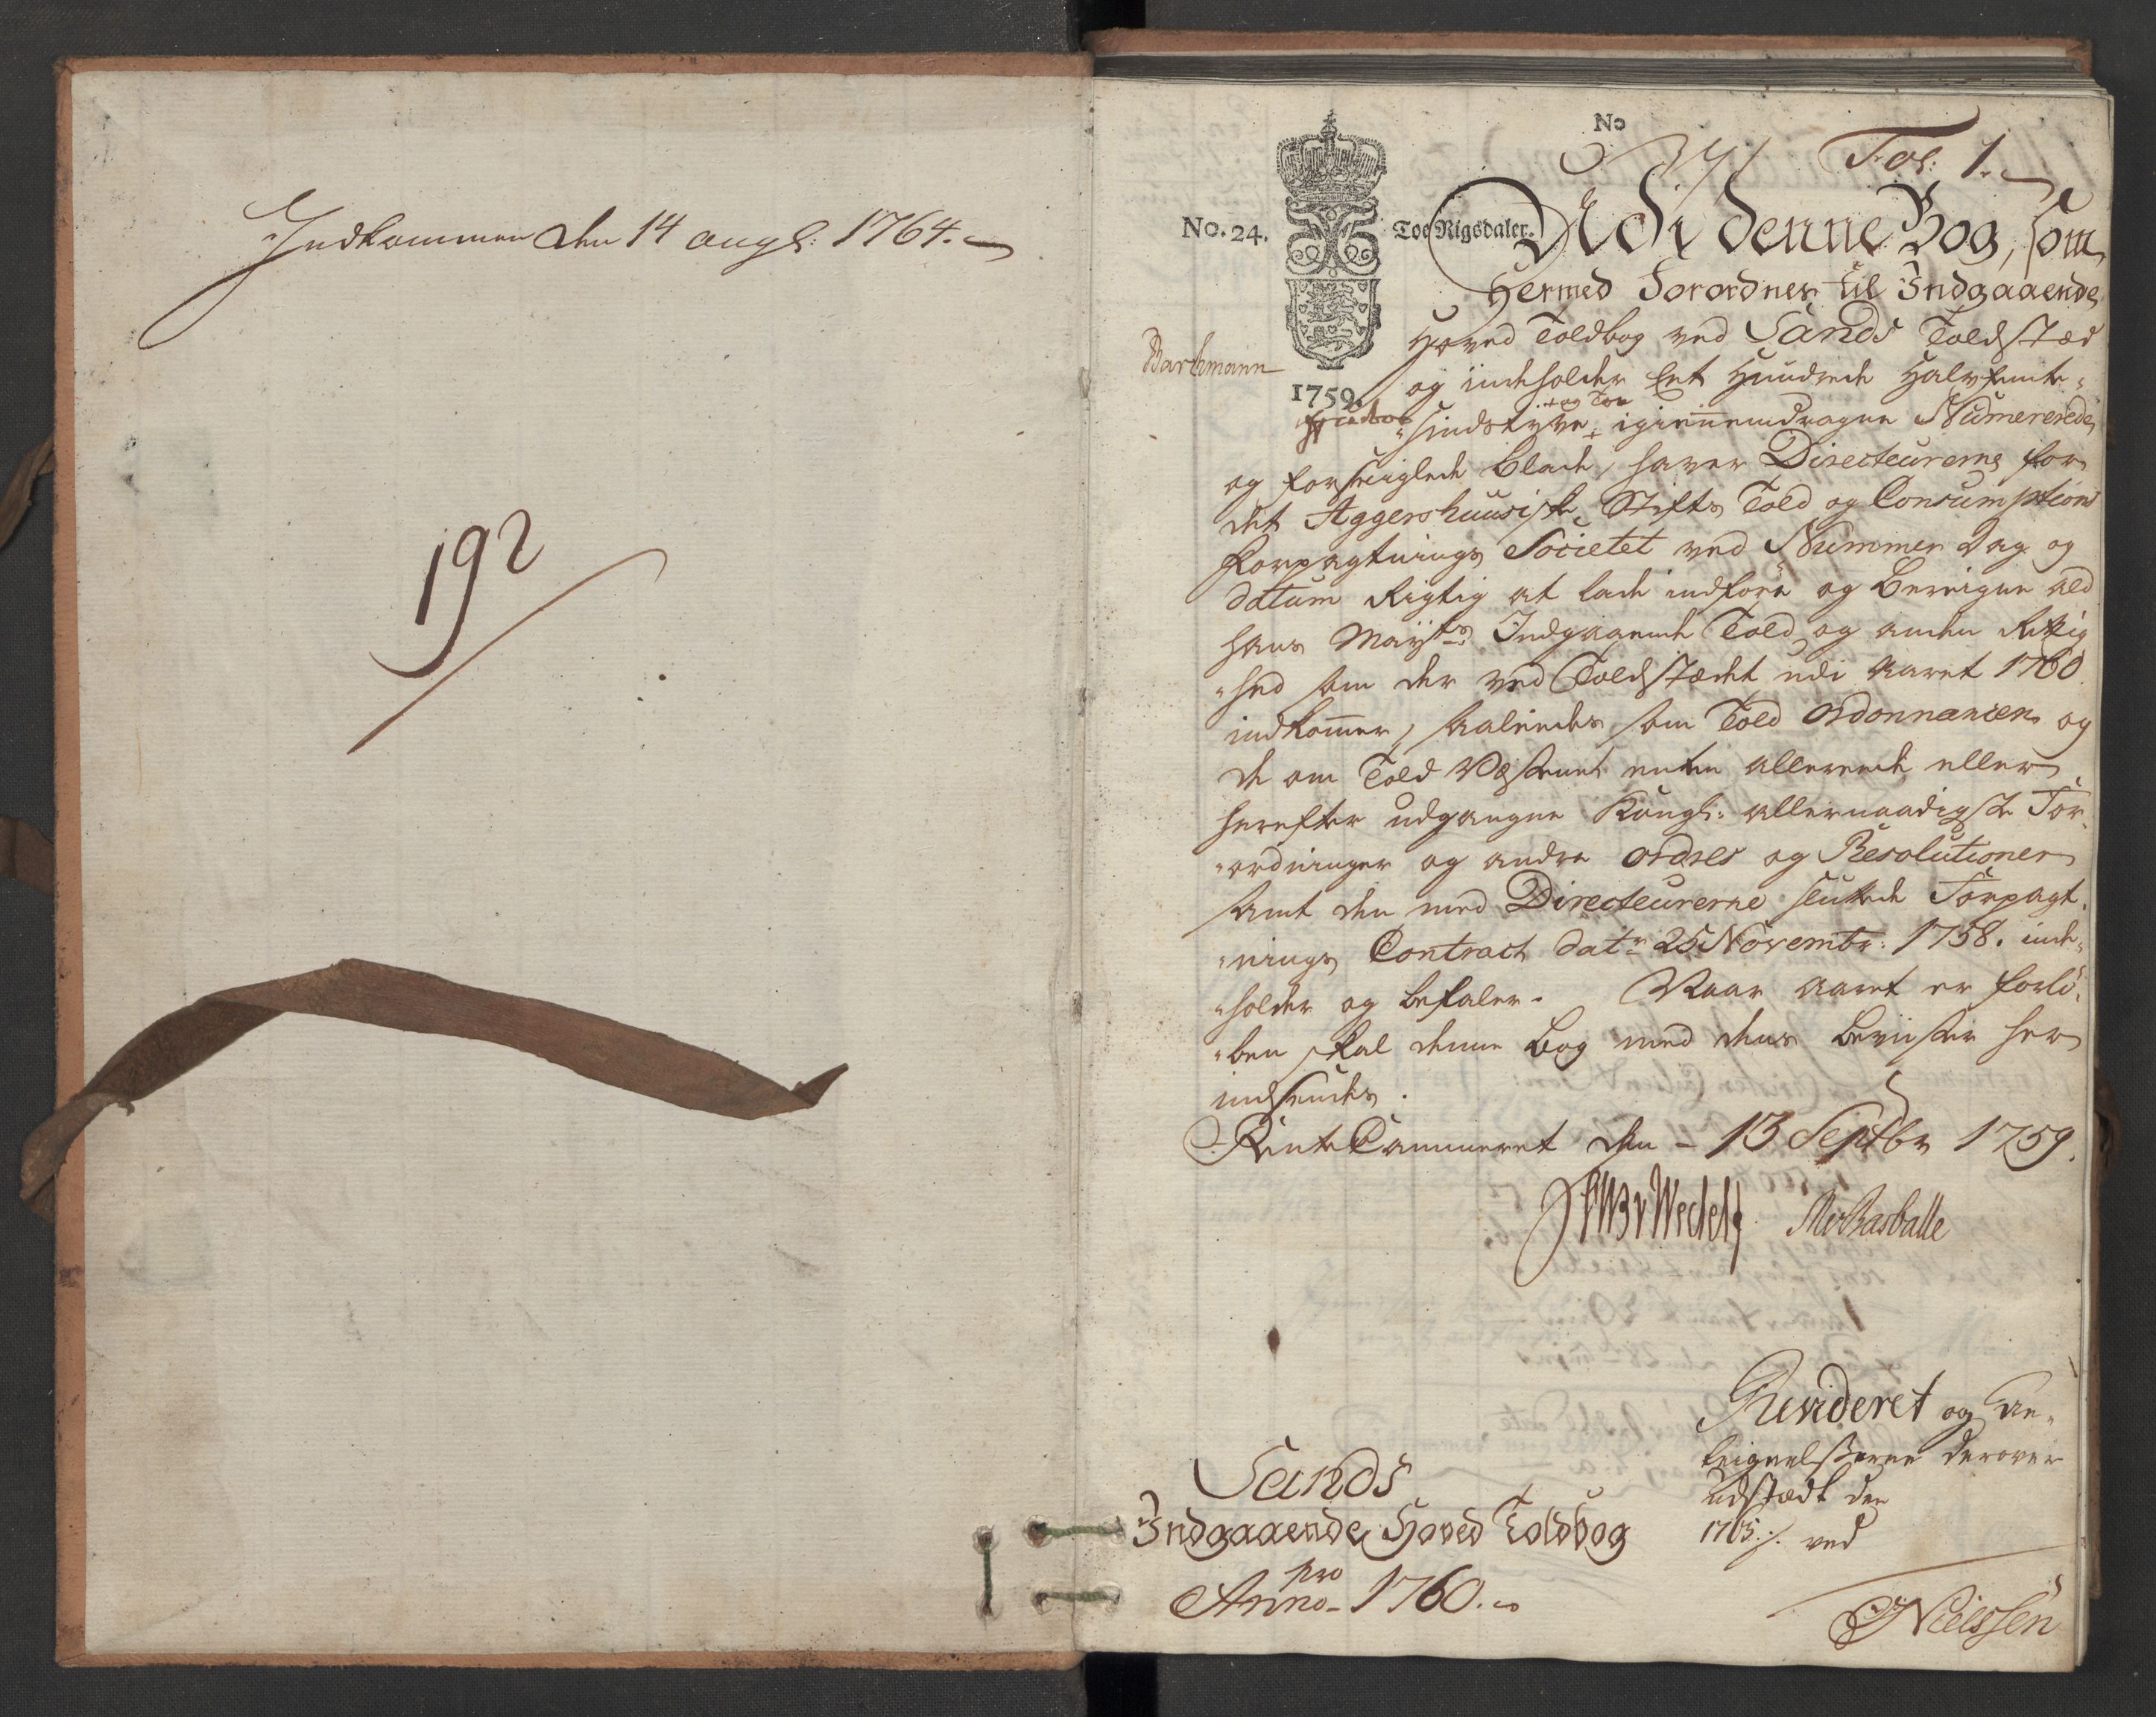 Indkommen den 14 augs: 1764.
192
No
341
Fol: 1.
No. 24.
Toe Rigsdaler.
1759.
Barthmann
Udi denne Bog, som
Hermed Forordnes til Indgaaende
Hoved Toldbog ved Sands Toldstæd
og indeholder Eet Hundrede Halvfemte-
og Toe
"sindstyve + igiennemdragne Numererede
og forseiglede Blade, haver Directeurerne for
det Aggershuusiske Stifts Told og Consumptions
Forpagtnings Societet ved Nummer Dag og
datum Rigtig at lade indføre og Bereigne ald
Hans Mayts Indgaaende Told og anden Rettig
"hed som der ved Toldstædet udi Aaret 1760
indkom̅er, saaledes som Told Ordonnancen og
de om Told Væsenet enten allerede eller
herefter udgangne Kongl: allernaadigste For-
"ordninger og andre Ordres og Resolutioner
samt den med Directeurerne sluttede Forpagt-
"nings Contract dat: 25 Novembr: 1758. inde-
"holder og befaler. Naar Aaret er forlø-
"ben skal denne Bog med dens Beviiser her
indsendes.
RenteCammeret den - 13 Septbr 1759.
Wedel
Rasballe
Revideret og An-
teignelsserne derover
udstædt den
1765 ./. ved
Nielssen
Sands
Indgaaende Hoved Toldbog
pro
Anno 1760.